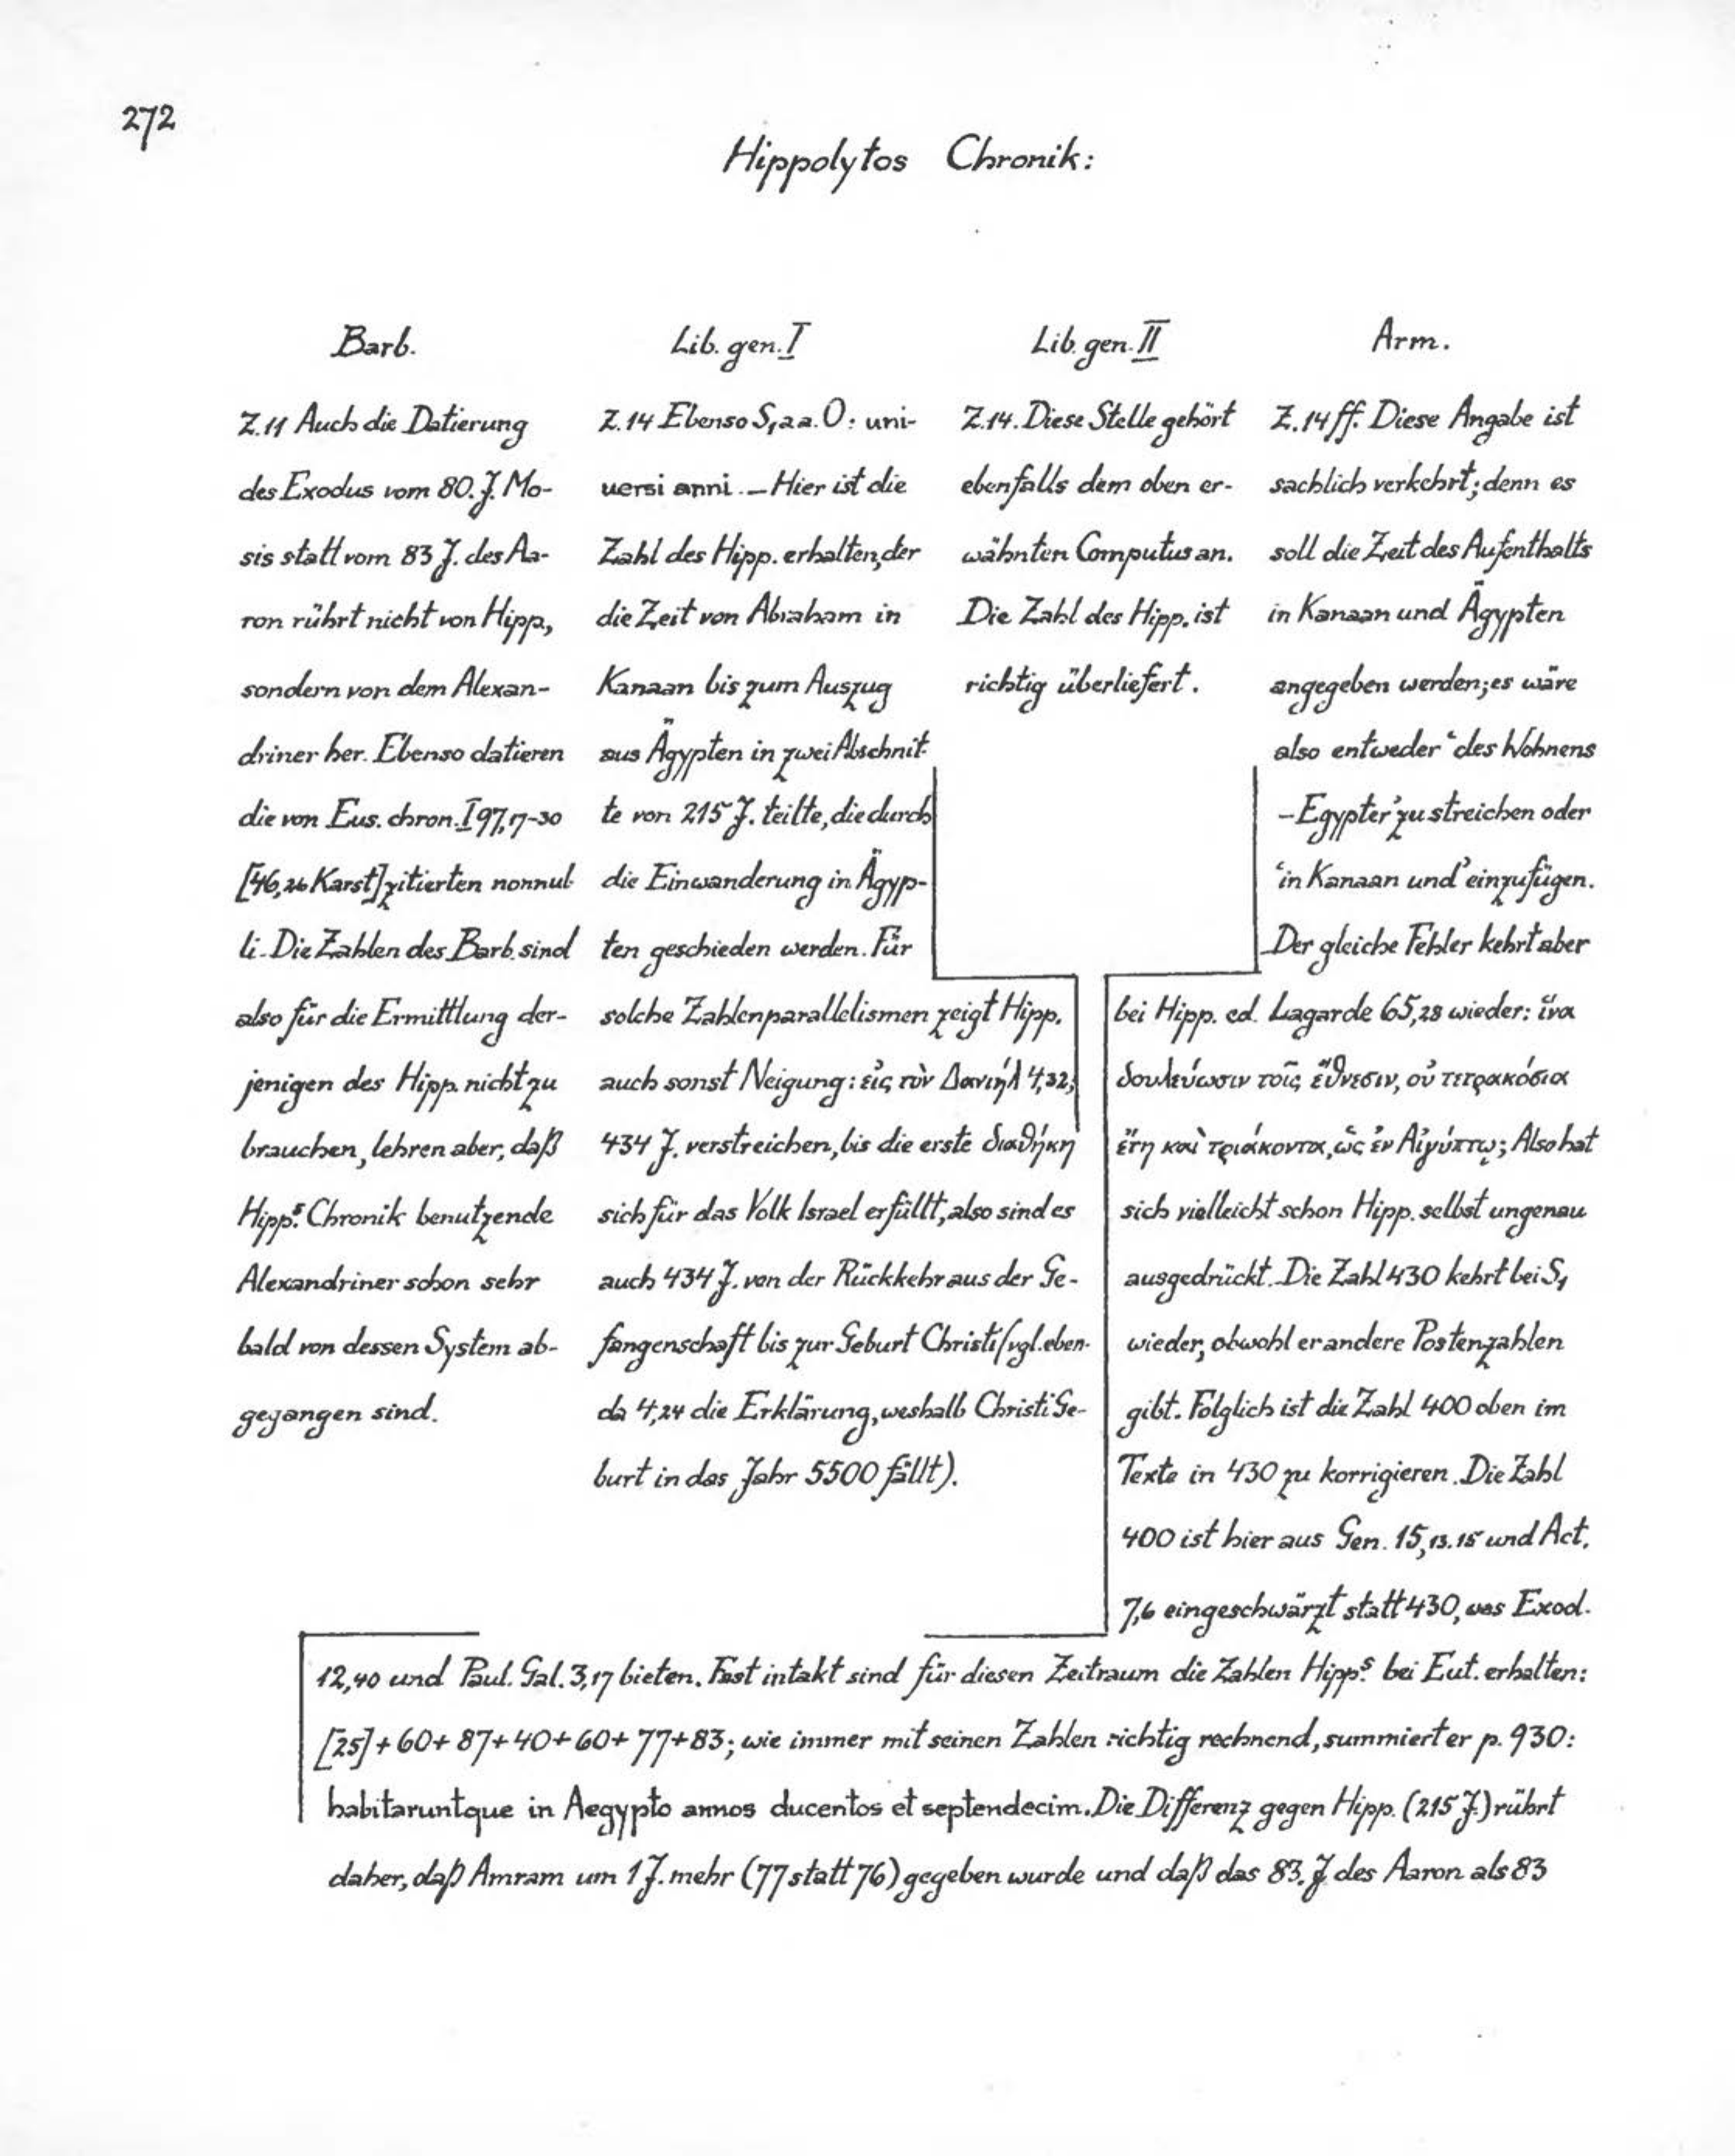 272
Hippolytos Chronik:
Barb.
Z.11 Auch die Datierung
des Exodus vom 80. J. Mo-
sis statt vom 83 J. des Aa-
ron rührt nicht von Hipp.,
sondern von dem Alexan-
driner her. Ebenso datieren
die von Eus. chron. I 97,17-30
[46,26 Karst] zitierten nonnul-
li. Die Zahlen des Barb. sind
also für die Ermittlung der-
jenigen des Hipp. nicht zu
brauchen, lehren aber, daß
Hipp.s Chronik benutzende
Alexandriner schon sehr
bald von dessen System ab-
gegangen sind.
Lib. gen. I
Z.14 Ebenso S₁ a.a.O: uni-
uersi anni. – Hier ist die
Zahl des Hipp. erhalten, der
die Zeit von Abraham in
Kanaan bis zum Auszug
aus Ägypten in zwei Abschnit-
te von 215 J. teilte, die durch
die Einwanderung in Ägyp-
ten geschieden werden. Für
solche Zahlenparallelismen zeigt Hipp.
auch sonst Neigung: εἰς τὸν Δανιήλ 4,32;
434 J. verstreichen, bis die erste διαθήκη
sich für das Volk Israel erfüllt, also sind es
auch 434 J. von der Rückkehr aus der Ge-
fangenschaft bis zur Geburt Christi (vgl. eben-
da 4,24 die Erklärung, weshalb Christi Ge-
burt in das Jahr 5500 fällt).
Lib. gen. II
Z.14. Diese Stelle gehört
ebenfalls dem oben er-
wähnten Computus an.
Die Zahl des Hipp. ist
richtig überliefert.
Arm.
Z.14 ff. Diese Angabe ist
sachlich verkehrt; denn es
soll die Zeit des Aufenthalts
in Kanaan und Ägypten
angegeben werden; es wäre
also entweder ‘des Wohnens
– Egypter’ zu streichen oder
‘in Kanaan und’ einzufügen.
Der gleiche Fehler kehrt aber
bei Hipp. ed. Lagarde 65,28 wieder: ἵνα
δουλεύωσιν τοῖς ἔθνεσιν, οὐ τετρακόσια
ἔτη καὶ τριάκοντα, ὡς ἐν Αἰγύπτῳ; Also hat
sich vielleicht schon Hipp. selbst ungenau
ausgedrückt. Die Zahl 430 kehrt bei S₁
wieder, obwohl er andere Postenzahlen
gibt. Folglich ist die Zahl 400 oben im
Texte in 430 zu korrigieren. Die Zahl
400 ist hier aus Gen. 15,13.15 und Act.
7,6 eingeschwärzt statt 430, was Exod.
12,40 und Paul. Gal. 3,17 bieten. Fast intakt sind für diesen Zeitraum die Zahlen Hipp.s bei Eut. erhalten:
[25] + 60 + 87 + 40 + 60 + 77 + 83; wie immer mit seinen Zahlen richtig rechnend, summiert er p. 930:
habitaruntque in Aegypto annos ducentos et septendecim. Die Differenz gegen Hipp. (215 J.) rührt
daher, daß Amram um 1 J. mehr (77 statt 76) gegeben wurde und daß das 83. J. des Aaron als 83